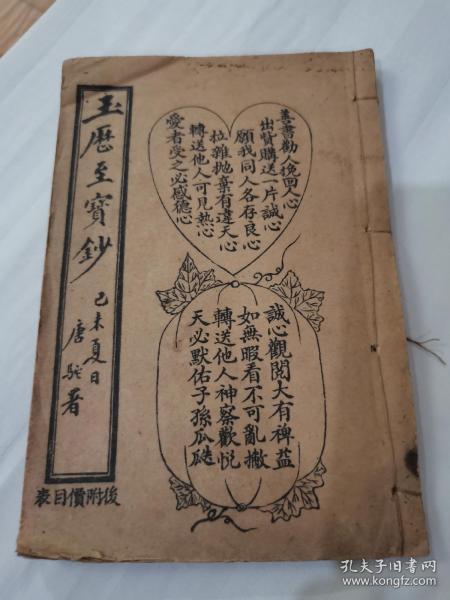 善書勸人挽回人心
出貲購送一片誠心
願我同人各存良心
拉雜拋棄有違天心
轉送他人可見熱心
愛者受之必感德心
誠心觀閱大有裨益
如無暇看不可亂撇
轉送他人神察歡悅
天必默佑子孫瓜瓞
玉歷至寶鈔
己未夏日
唐駝署
後附價目表
孔夫子旧书网
www.kongfz.com